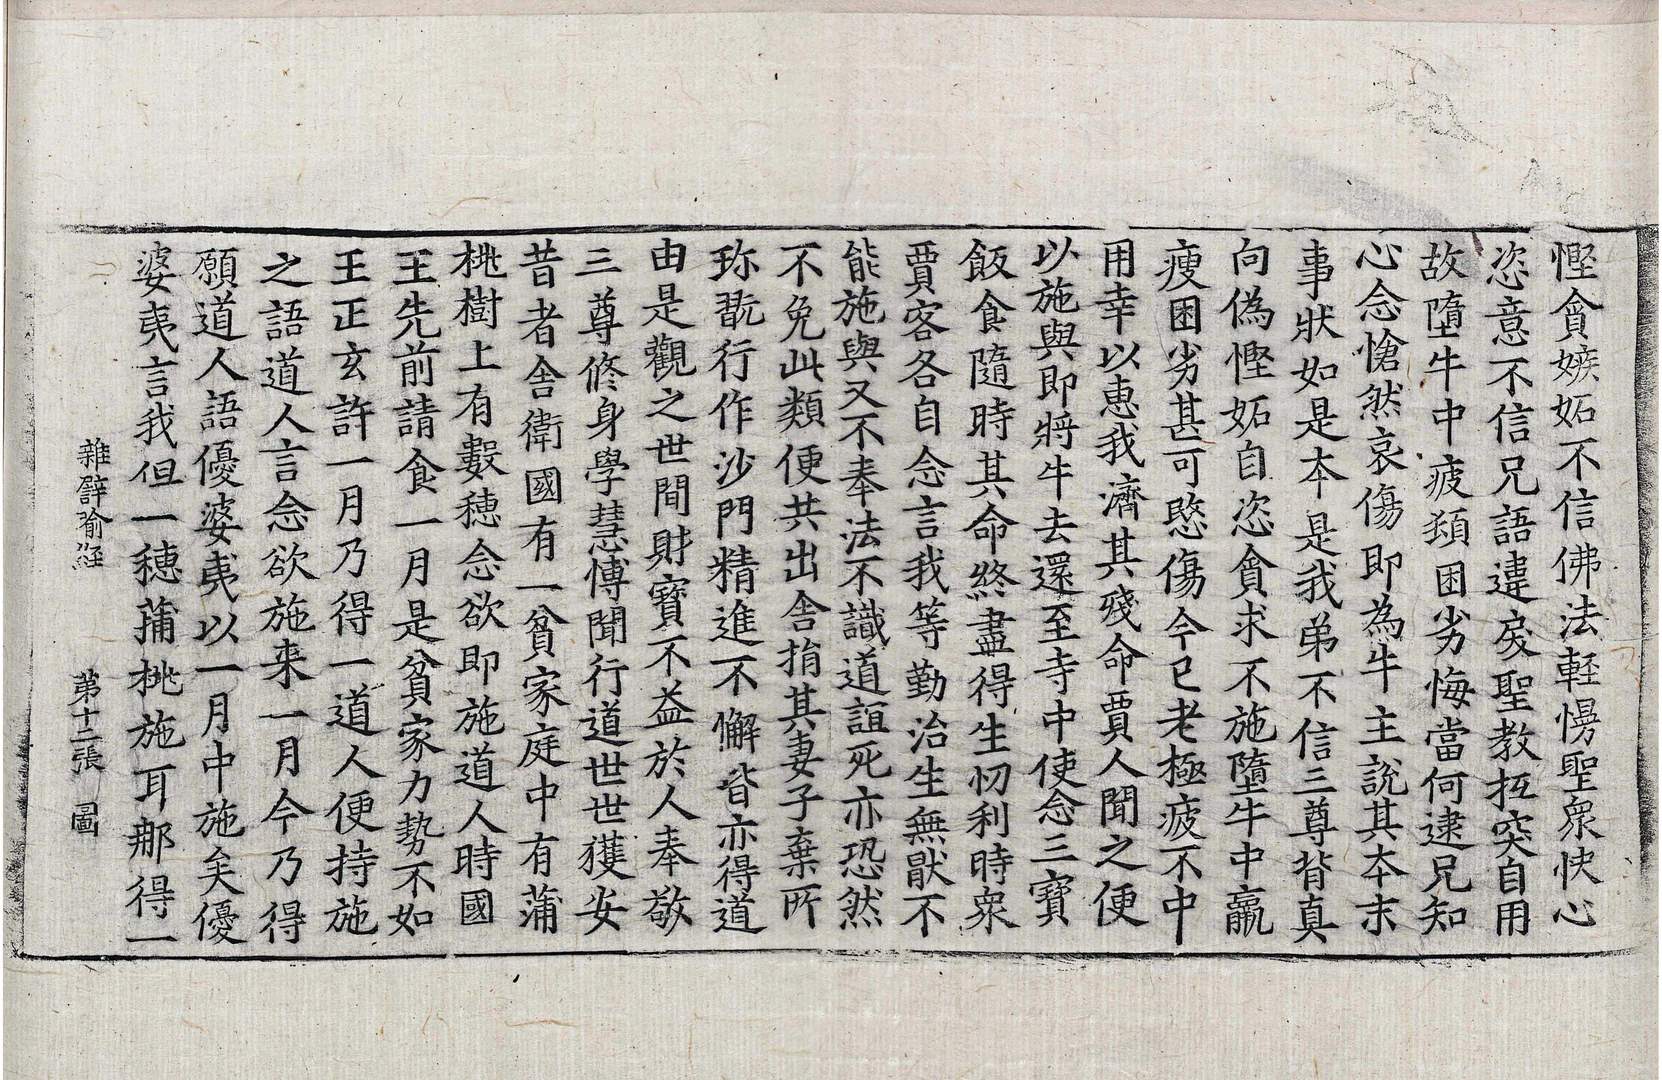 慳貪嫉妬不信佛法輕慢聖衆快心
恣意不信兄語違戾聖教抵突自用
故墮牛中疲頦困劣悔當何逮兄知
心念愴然哀傷即為牛主說其本末
事狀如是本是我弟不信三尊背真
向偽慳妬自恣貪求不施墮牛中羸
瘦困劣甚可愍傷今已老極疲不中
用幸以惠我濟其殘命賈人聞之便
以施與即將牛去還至寺中使念三寶
飯食隨時其命終盡得生忉利時衆
賈客各自念言我等勤治生無猒不
能施與又不奉法不識道誼死亦恐然
不免此類便共出舍捐其妻子棄所
珎翫行作沙門精進不懈皆亦得道
由是觀之世間財寶不益於人奉敬
三尊修身學慧愽聞行道世世獲安
昔者舍衛國有一貧家庭中有蒲
桃樹上有數穗念欲即施道人時國
王先前請食一月是貧家力勢不如
王正玄許一月乃得一道人便持施
之語道人言念欲施来一月今乃得
願道人語優婆夷以一月中施矣優
婆夷言我但一穗蒱桃施耳那得一
雜譬喻經 第十二張 圖